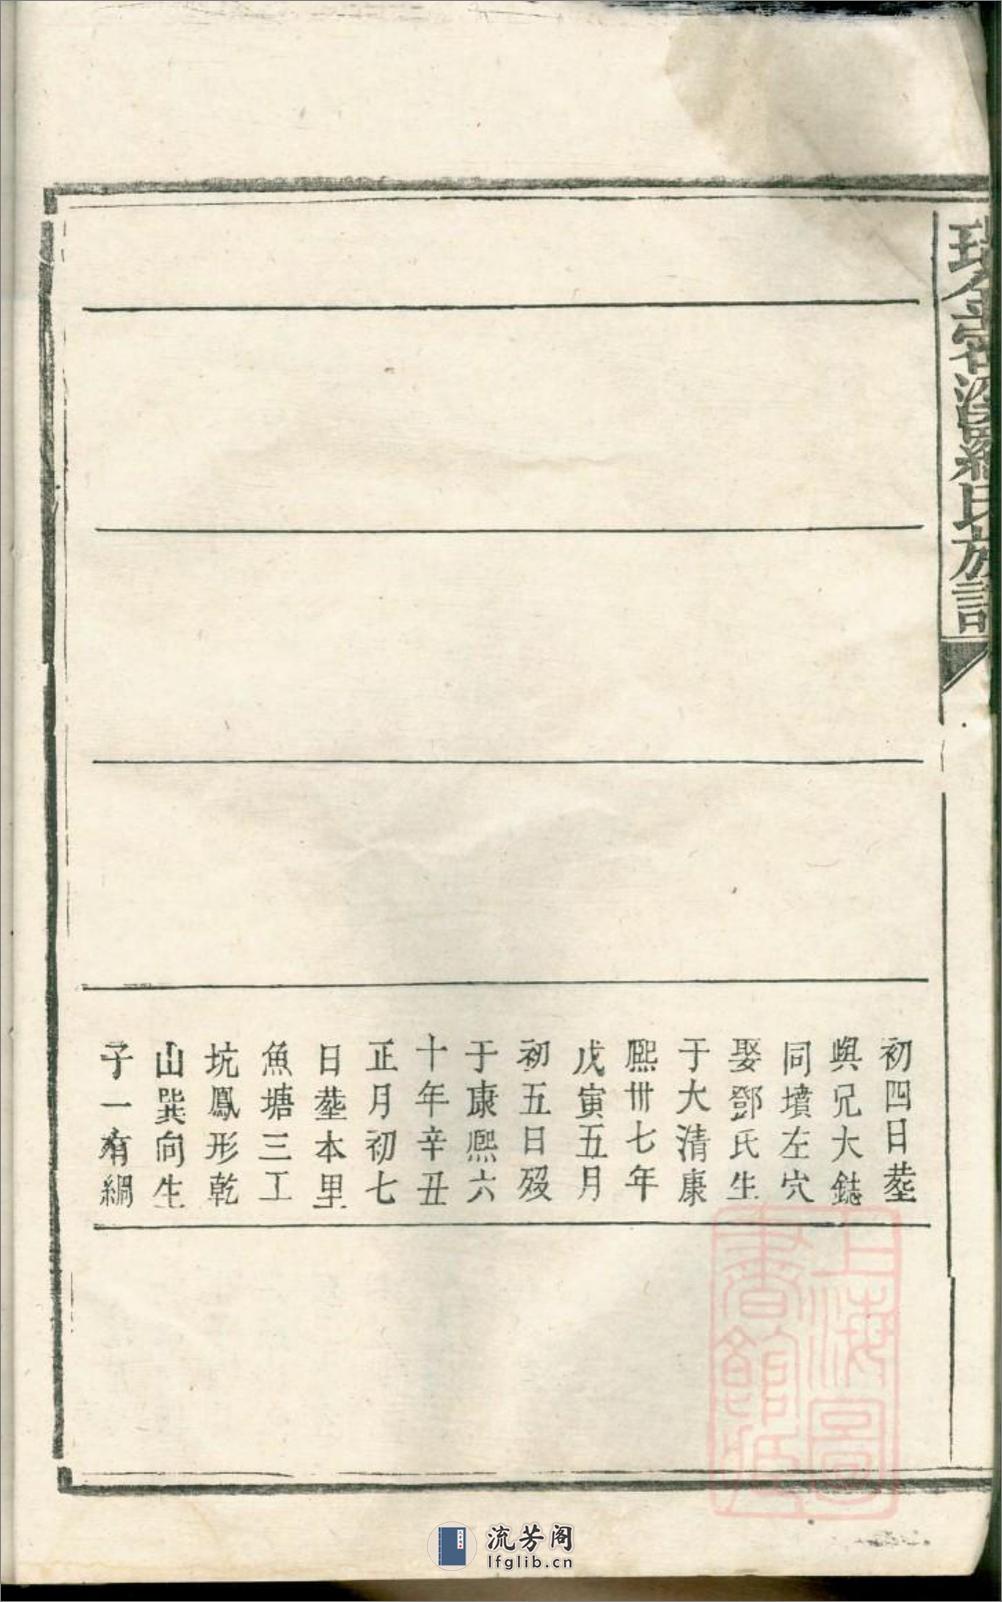 瑞金密溪羅氏族譜
初四日塟
與兄大鋕
同墳左穴
娶鄧氏生
于大清康
熙卅七年
戊寅五月
初五日殁
于康熙六
十年辛丑
正月初七
日塟本里
魚塘三工
坑鳳形乾
山巽向生
子一有綱
上海圖
書館藏
流芳阁
lfglib.cn